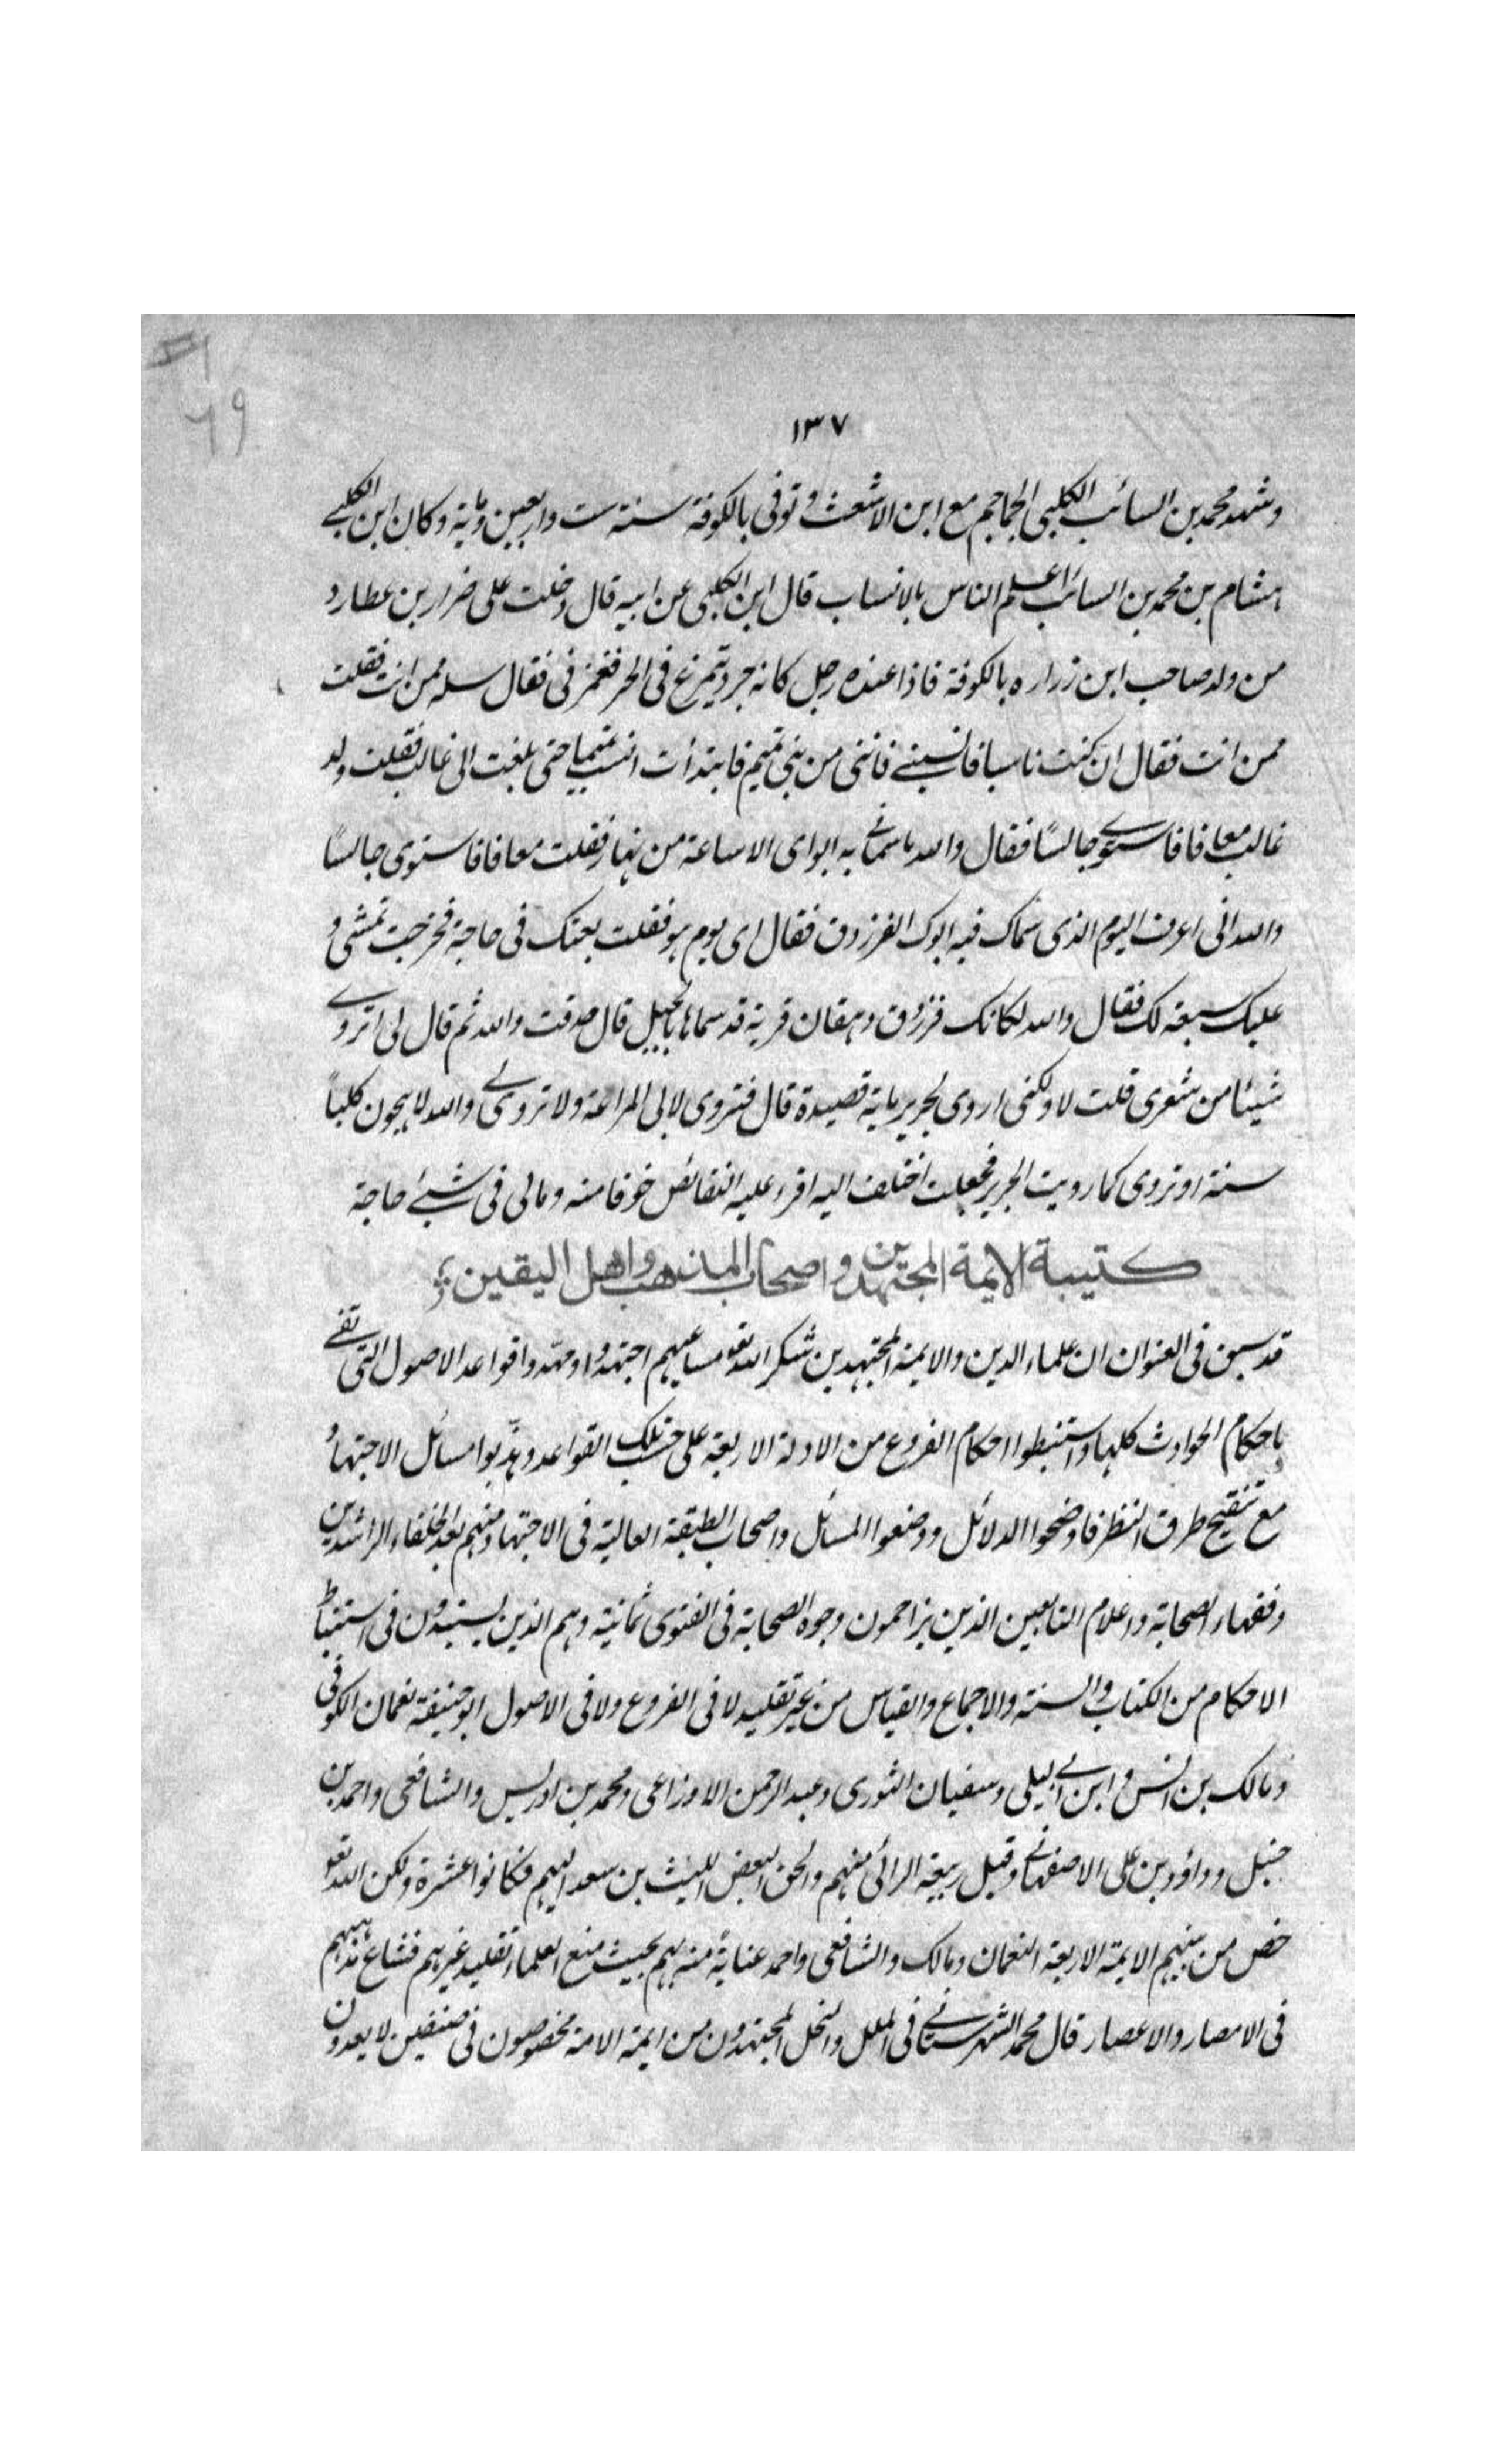 ٦٩
١٣٧
وشهد محمد بن السائب الكلبي الجماجم مع ابن الاشعث و توفى بالكوفة سنة ست واربعين وماية وكان ابن الكلبي
هشام بن محمد بن السائب اعلم الناس بالانساب قال ابن الكلبي عن ابيه قال دخلت على ضرار بن عطارد
من ولد صاحب ابن زراره بالكوفة فاذا عنده رجل كانه جرد يتمرغ فى الخز فغمزنى فقال سله ممن انت فقلت
ممن انت فقال ان كنت ناسبا فانسبنے فاننى من بنى تميم فابتدأت انسب تميما حتى بلغت الى غالب فقلت ولد
غالب معافا فاستوے جالسًا فقال والله ماسمانے به ابواى الا ساعة من نهار فقلت معافا فاستوى جالسًا
والله انى اعرف اليوم الذى سماك فيه ابوك الفرزدق فقال اى يوم هو فقلت بعثك فى حاجة فخرجت تمشى و
عليك سبعة لك فقال والله لكانك فرزدق دهقان قرية قد سماها بالجبل قال صدقت والله ثم قال لى اتروے
شيئا من شعرى قلت لا ولكنى اروى لجرير ماية قصيدة قال فتروى لابى المراغة ولا تروى لے والله لاهجون كلبًا
سنة او تروى كما رويت لجرير فجعلت اختلف اليه اقرء عليه النقائض خوفا منه ومالى فى شيئ حاجة
كتيبة الايمة المجتهدين و اصحاب المذهب واهل اليقين
قد سبق فى العنوان ان علماء الدين والايمة المجتهدين شكر الله تعو مساعيهم اجتهدوا ومهدوا قواعد الاصول التى تفے
باحكام الحوادث كلها واستنبطوا احكام الفروع من الادلة الاربعة على حسب تلك القواعد وهذّبوا مسائل الاجتهاد
مع تنقيح طرق النظر فاوضحوا الدلائل ووضعوا المسائل واصحاب الطبقة العالية فى الاجتهاد منهم بعد الخلفاء الراشدين
وفقهاء الصحابة واعلام التابعين الذين يزاحمون وجوه الصحابة فى الفتوى ثمانية وهم الذين يستبدون فى استنباط
الاحكام من الكتاب والسنة والاجماع والقياس من غير تقليد لا فى الفروع ولا فى الاصول ابو حنيفة نعمان الكوفى
ومالك بن انس و ابن ابے ليلى وسفيان الثورى وعبد الرحمن الاوزاعى ومحمد بن ادريس والشافعى واحمد بن
حنبل و داؤد بن على الاصفهانے وقيل ربيعة الرائى منهم والحق البعض الليث بن سعد اليهم فكانوا عشرة ولكن الله تعو
خص من بينهم الايمة الاربعة النعمان ومالك والشافعى واحمد عناية منه بهم بحيث منع العلماء تقليد غيرهم فشاع مذهبهم
فى الامصار والاعصار قال محمد الشهرستانے فى الملل والنحل المجتهدون من ايمة الامة مخصوصون فى صنفين لا يعدون